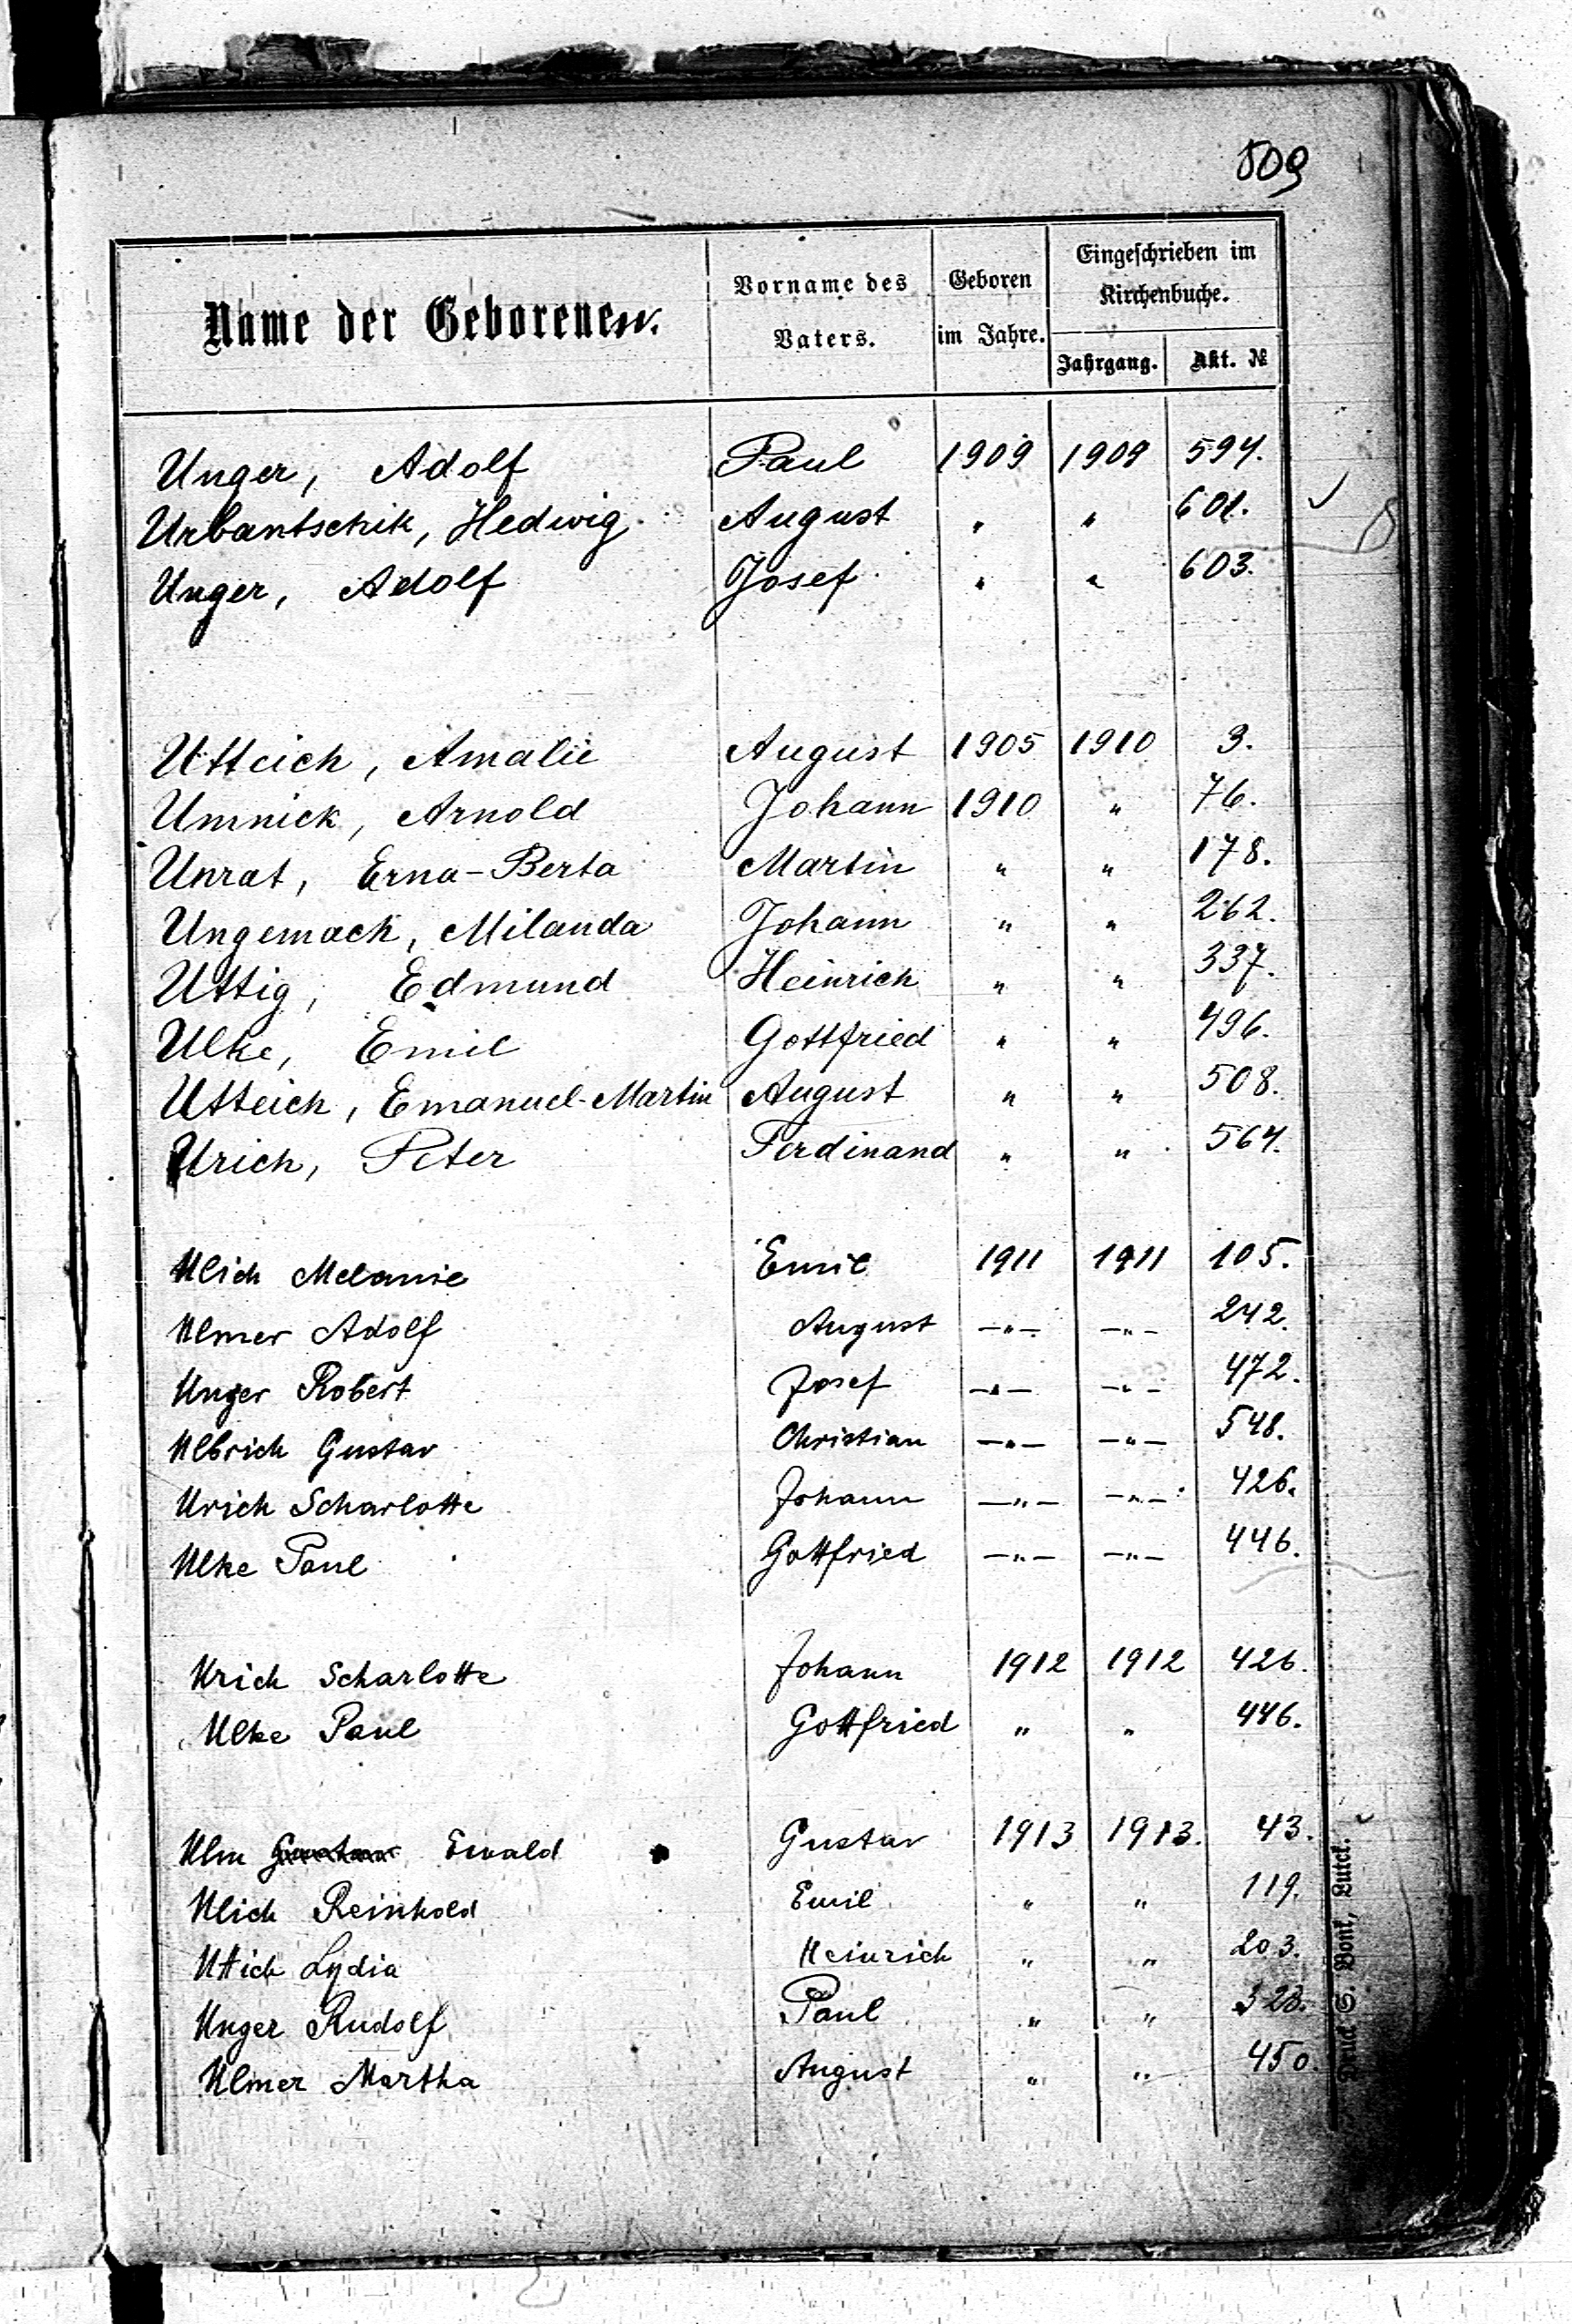 509
Name der Geborenen.
Vorname des Vaters.
Geboren im Jahre.
Eingeschrieben im Kirchenbuche.
Jahrgang. Akt. №
Unger, Adolf Paul 1909 1909 594.
Urbantschik, Hedwig August " " 601.
Unger, Adolf Josef " " 603.
Utteich, Amalie August 1905 1910 3.
Umnick, Arnold Johann 1910 " 76.
Unrat, Erna-Berta Martin " " 178.
Ungemach, Milanda Johann " " 262.
Uttig, Edmund Heinrich " " 337.
Ulke, Emil Gottfried " " 496.
Utteich, Emanuel-Martin August " " 508.
Urich, Peter Ferdinand " " 564.
Ulich Melanie Emil 1911 1911 105.
Ulmer Adolf August —"— —"— 242.
Unger Robert Josef —"— —"— 472.
Ulbrich Gustav Christian —"— —"— 548.
Urich Scharlotte Johann —"— —"— 426.
Ulke Paul Gottfried —"— —"— 446.
Urich Scharlotte Johann 1912 1912 426.
Ulke Paul Gottfried " " 446.
Ulm Gustav Ewald Gustav 1913 1913. 43.
Ulich Reinhold Emil " " 119.
Uttich Lydia Heinrich " " 203.
Unger Rudolf Paul " " 323.
Ulmer Martha August " " 450.
Druck S. Bonk, Lutck.